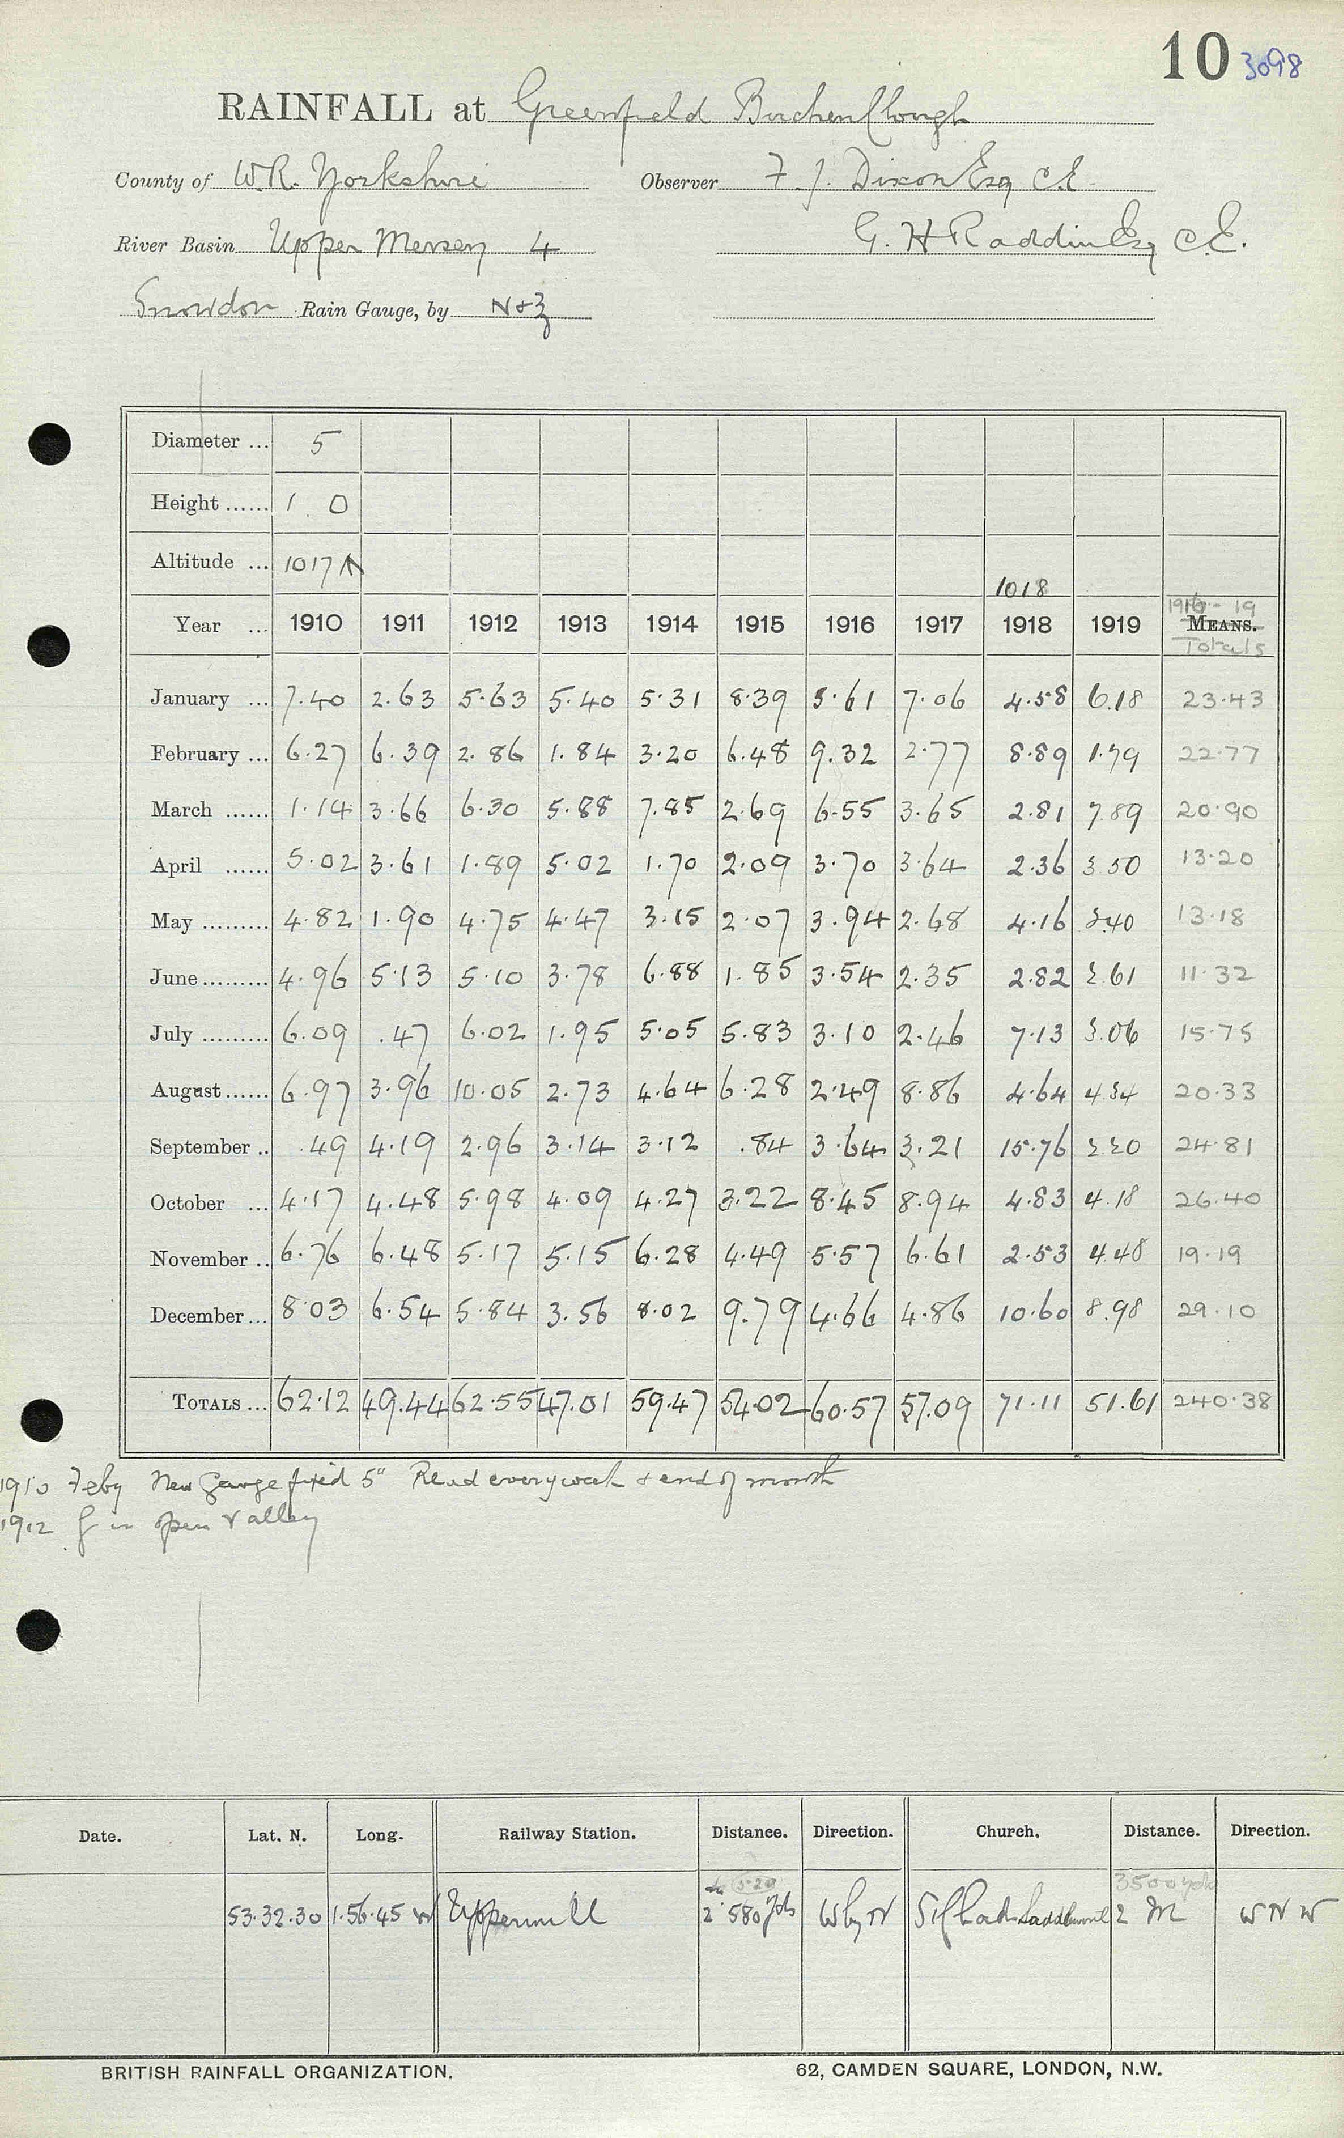 10 3098
RAINFALL at Greenfield Birchen Clough
County of W.R. Yorkshire Observer F. J. Dixon Esq C.E.
River Basin Upper Mersey 4 G. H Raddin Esq C.E.
Snowdon Rain Gauge, by N & Z
Diameter ... 5
Height ...... 1 . 0
Altitude ... 1017 1018
1916 - 19
Year ... 1910 1911 1912 1913 1914 1915 1916 1917 1918 1919 MEANS.
Totals
January ... 7.40 2.63 5.63 5.40 5.31 8.39 5.61 7.06 4.58 6.18 23.43
February ... 6.27 6.39 2.86 1.84 3.20 6.48 9.32 2.77 8.89 1.79 22.77
March ...... 1.14 3.66 6.30 5.88 7.85 2.69 6.55 3.65 2.81 7.89 20.90
April ...... 5.02 3.61 1.89 5.02 1.70 2.09 3.70 3.64 2.36 3.50 13.20
May ......... 4.82 1.90 4.75 4.47 3.15 2.07 3.94 2.68 4.16 2.40 13.18
June ......... 4.96 5.13 5.10 3.78 6.88 1.85 3.54 2.35 2.82 2.61 11.32
July ......... 6.09 .47 6.02 1.95 5.05 5.83 3.10 2.46 7.13 3.06 15.75
August ...... 6.97 3.96 10.05 2.73 4.64 6.28 2.49 8.86 4.64 4.34 20.33
September .. .49 4.19 2.96 3.14 3.12 .84 3.64 3.21 15.76 2.20 24.81
October ... 4.17 4.48 5.98 4.09 4.27 3.22 8.45 8.94 4.83 4.18 26.40
November .. 6.76 6.48 5.17 5.15 6.28 4.49 5.57 6.61 2.53 4.48 19.19
December ... 8.03 6.54 5.84 3.56 8.02 9.79 4.66 4.86 10.60 8.98 29.10
TOTALS ... 62.12 49.44 62.55 47.01 59.47 54.02 60.57 57.09 71.11 51.61 240.38
1910 Feby New Gauge fixed 5" Read every week & end of month
1912 G in open valley
Date. Lat. N. Long. Railway Station. Distance. Direction. Church. Distance. Direction.
3500 yds
53.32.30 1.56.45 W Uppermill 2 580 yds W by N St Chad Saddleworth 2 M W N W
BRITISH RAINFALL ORGANIZATION. 62, CAMDEN SQUARE, LONDON, N.W.